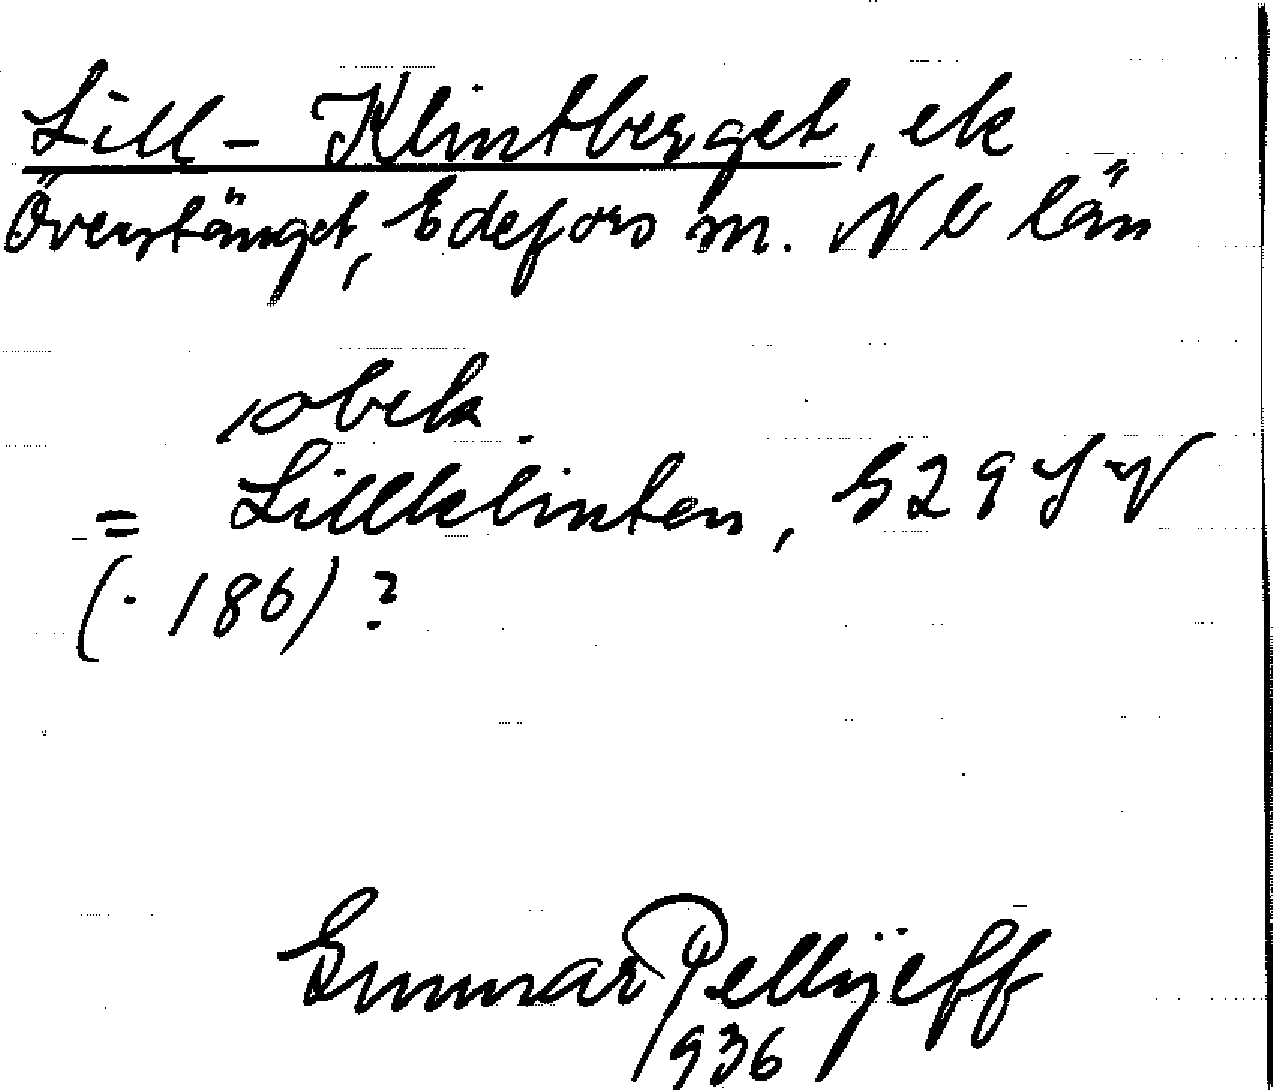 Lill-Klintberget, ek
Överstänget, Edefors sn. Nb län
obek.
= Lillklinten, S29SV
(· 186)?
Gunnar Pellijeff
1936